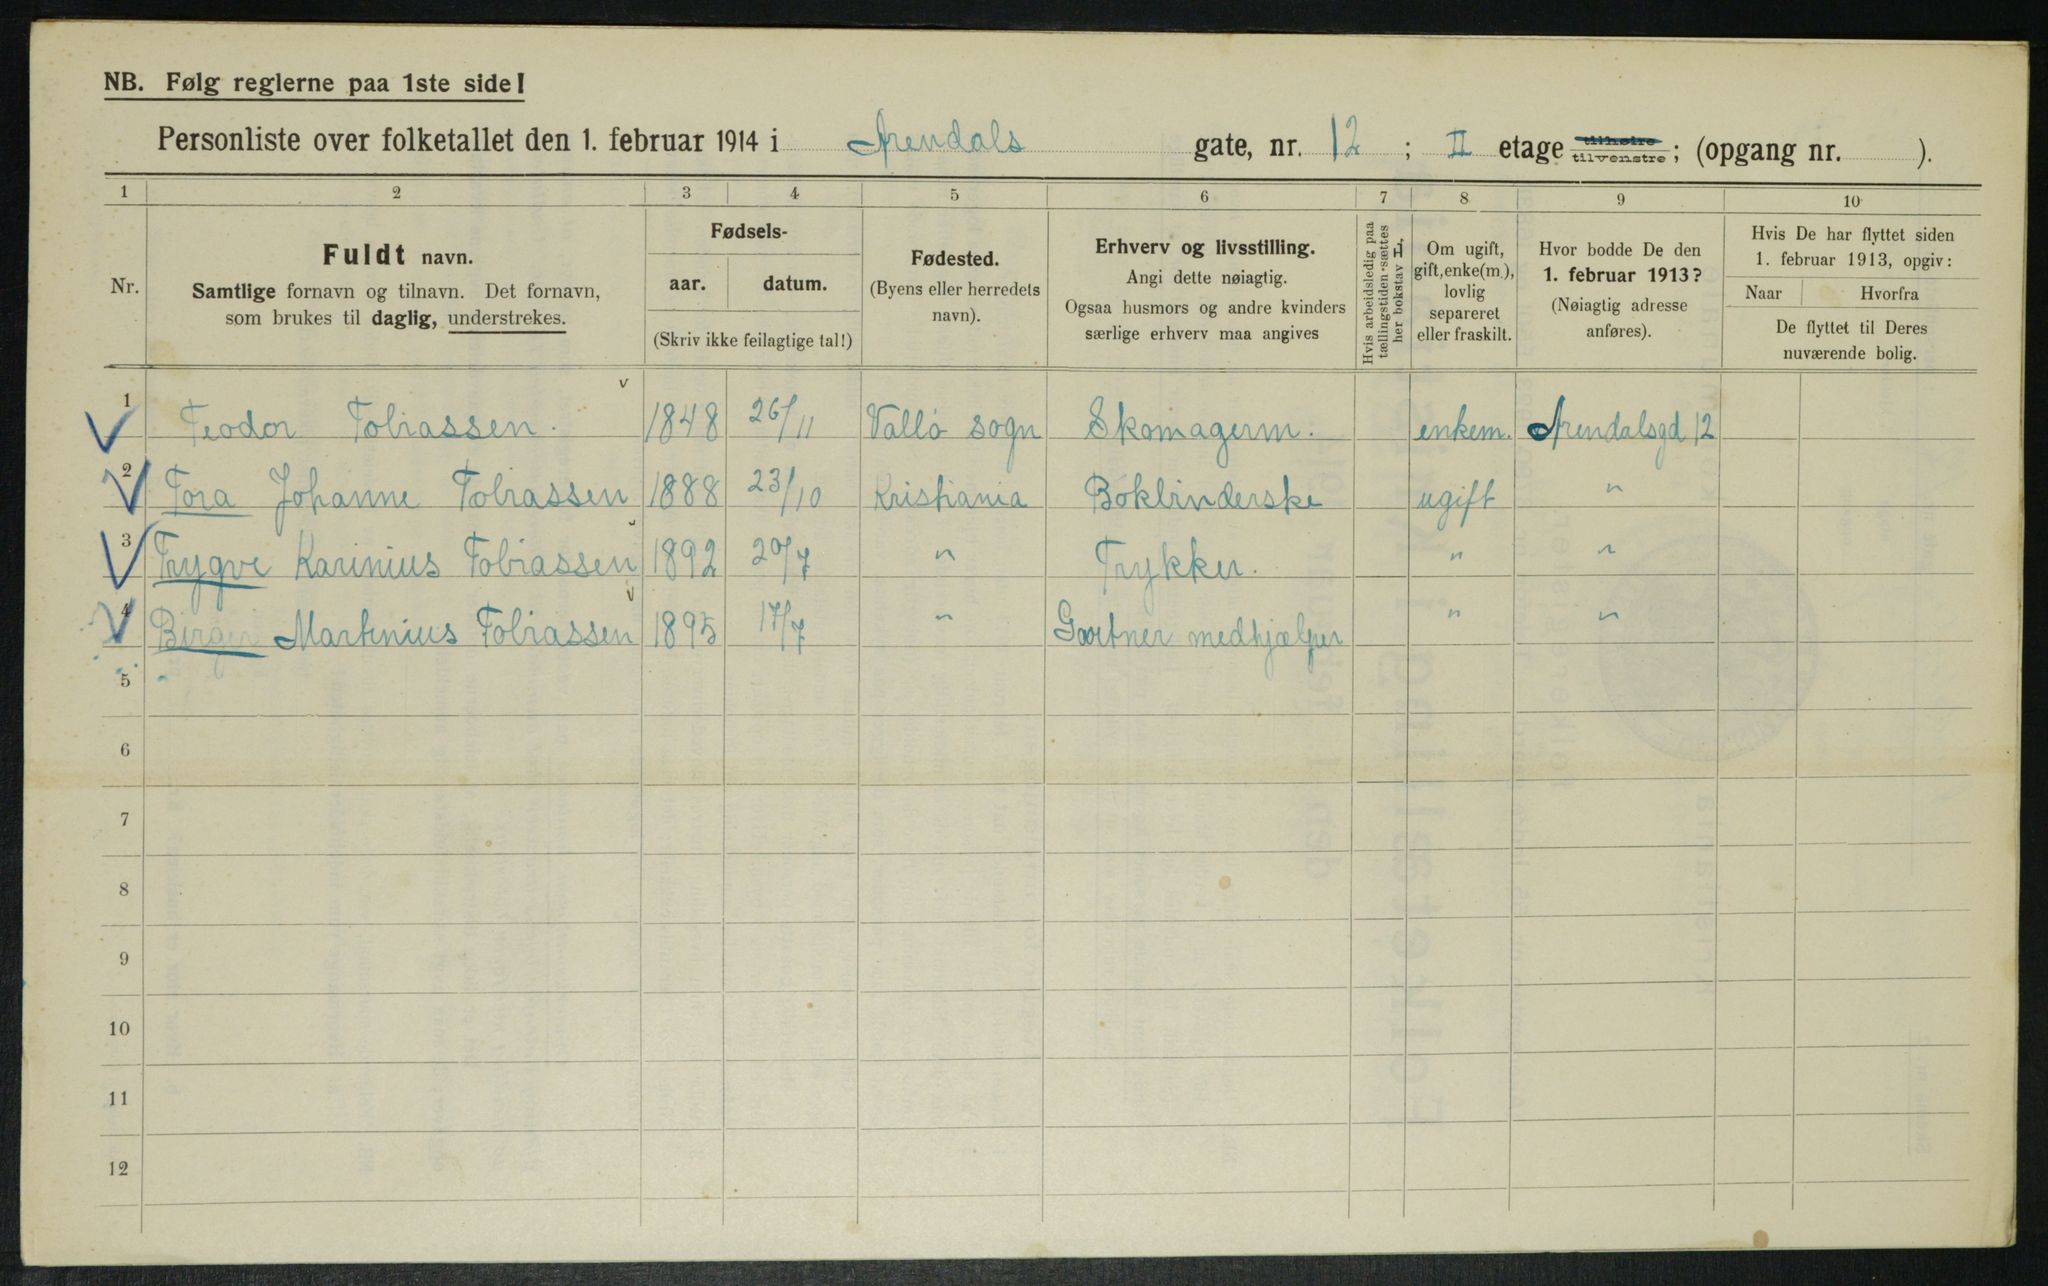 NB. Følg reglerne paa 1ste side!
Personliste over folketallet den 1. februar 1914 i Arendals gate, nr. 12 ; II etage tilhøire tilvenstre; (opgang nr. ).
1 2 3 4 5 6 7 8 9 10
Nr.
Fuldt navn.
Samtlige fornavn og tilnavn. Det fornavn,
som brukes til daglig, understrekes.
Fødsels-
aar. datum.
(Skriv ikke feilagtige tal!)
Fødested.
(Byens eller herredets
navn).
Erhverv og livsstilling.
Angi dette nøiagtig.
Ogsaa husmors og andre kvinders
særlige erhverv maa angives
Hvis arbeidsledig paa
tællingstiden sættes
her bokstav L.
Om ugift,
gift, enke(m.),
lovlig
separeret
eller fraskilt.
Hvor bodde De den
1. februar 1913?
(Nøiagtig adresse
anføres).
Hvis De har flyttet siden
1. februar 1913, opgiv:
Naar Hvorfra
De flyttet til Deres
nuværende bolig.
1 Teodor Tobiassen. 1848 26/11 Vallö sogn Skomagerm. enkem. Arendalsgd 12
2 Tora Johanne Tobiassen 1888 23/10 Kristiania Bokbinderske ugift "
3 Trygve Karinius Tobiassen 1892 20/7 " Trykker. " "
4 Birger Martinius Tobiassen 1895 17/7 " Gartner medhjælper " "
5
6
7
8
9
10
11
12